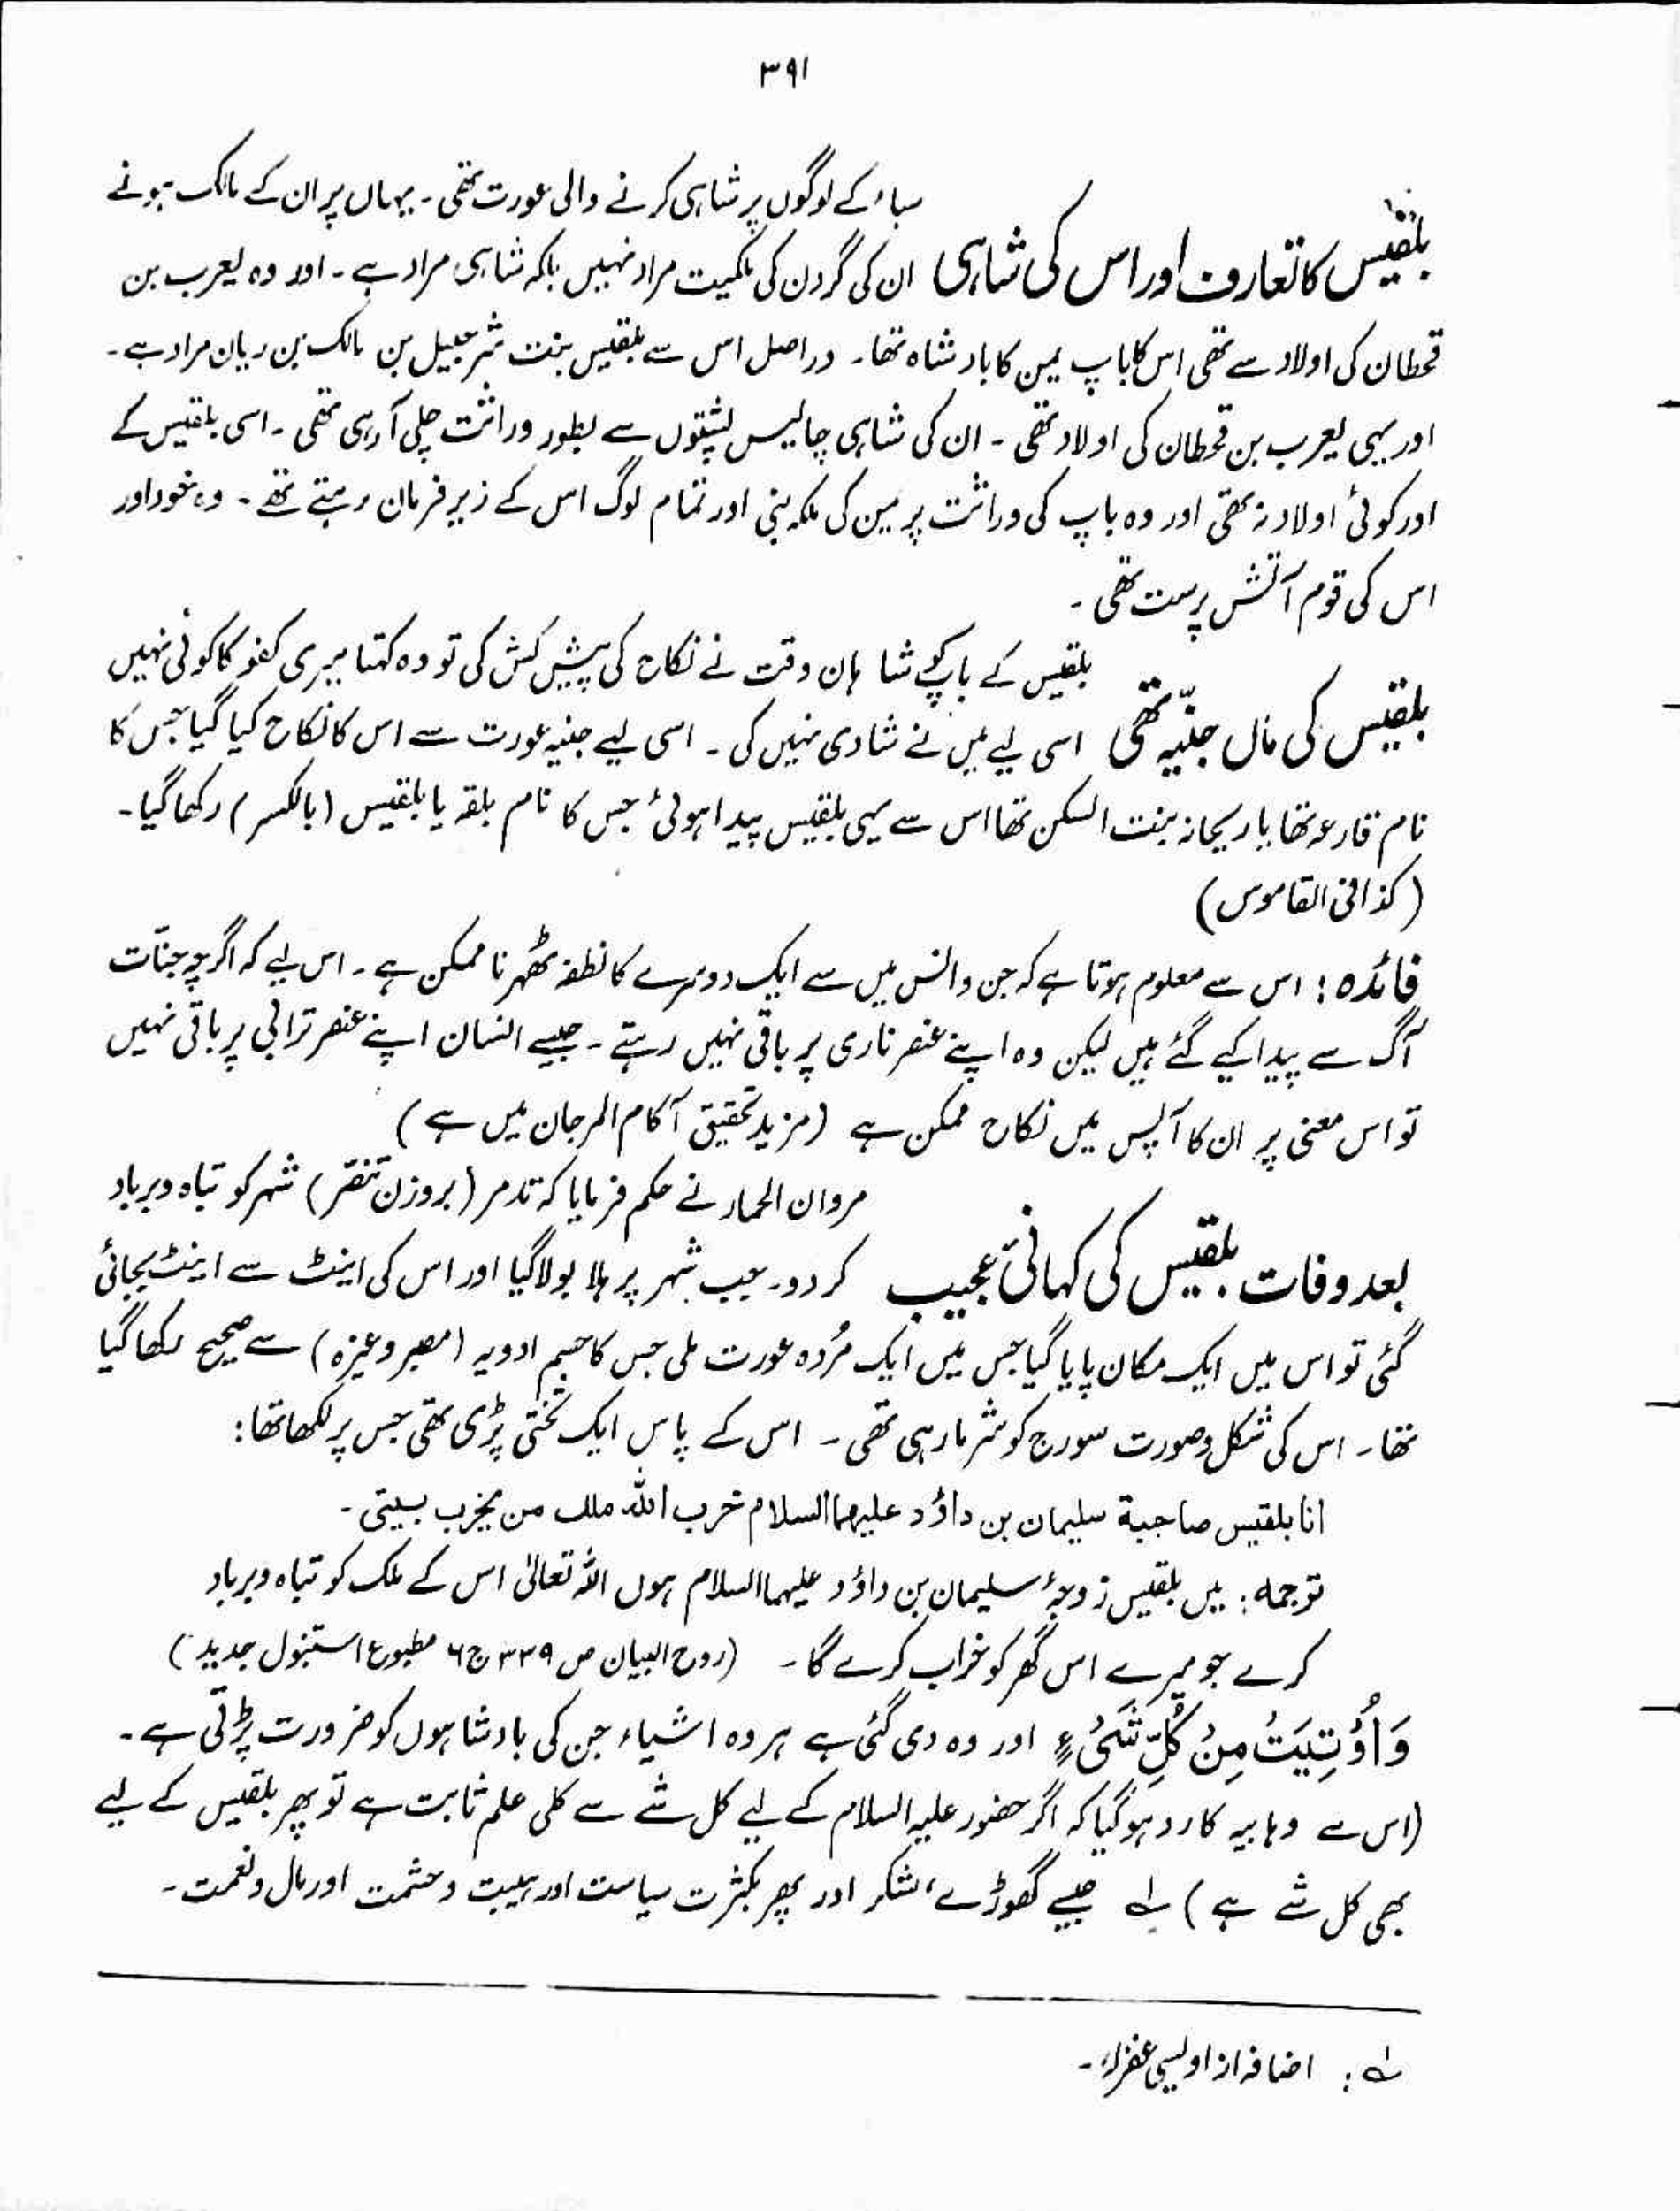 ۳۹۱
سباء کے لوگوں پر شاہی کرنے والی عورت تھی۔ یہاں پر ان کے مالک ہونے
بلقیس کا تعارف اور اس کی شاہی ان کی گردن کی ملکیت مراد نہیں بلکہ شاہی مراد ہے۔ اور وہ یعرب بن
قحطان کی اولاد سے تھی اس کا باپ یمن کا بادشاہ تھا۔ دراصل اس سے بلقیس بنت شرحبیل بن مالک بن ریان مراد ہے۔
اور یہی یعرب بن قحطان کی اولاد تھی۔ ان کی شاہی چالیس پشتوں سے بطور وراثت چلی آ رہی تھی۔ اسی بلقیس کے
اور کوئی اولاد نہ تھی اور وہ باپ کی وراثت پر یمن کی ملکہ بنی اور تمام لوگ اس کے زیر فرمان رہتے تھے۔ وہ خود اور
اس کی قوم آتش پرست تھی۔
بلقیس کے باپ کو شاہان وقت نے نکاح کی پیش کش کی تو وہ کہتا میری کفو کا کوئی نہیں
بلقیس کی ماں جنّیہ تھی اسی لیے میں نے شادی نہیں کی۔ اسی لیے جنیہ عورت سے اس کا نکاح کیا گیا جس کا
نام قارعہ تھا یا ریحانہ بنت السکن تھا اس سے یہی بلقیس پیدا ہوئی جس کا نام بلقہ یا بلقیس (بالکسر) رکھا گیا۔
(کذا فی القاموس)
فائدہ: اس سے معلوم ہوتا ہے کہ جن و انس میں سے ایک دوسرے کا نطفہ ٹھہرنا ممکن ہے۔ اس لیے کہ اگرچہ جنّات
آگ سے پیدا کیے گئے ہیں لیکن وہ اپنے عنصر ناری پر باقی نہیں رہتے۔ جیسے انسان اپنے عنصر ترابی پر باقی نہیں
تو اس معنی پر ان کا آپس میں نکاح ممکن ہے (مزید تحقیق آکام المرجان میں ہے)
مروان الحمار نے حکم فرمایا کہ تدمر (بروزن تنقر) شہر کو تباہ و برباد
بعد وفات بلقیس کی کہانی عجیب کر دو۔ جب شہر پر ہلا بولا گیا اور اس کی اینٹ سے اینٹ بجائی
گئی تو اس میں ایک مکان پایا گیا جس میں ایک مُردہ عورت ملی جس کا جسم ادویہ (مصبر وغیرہ) سے صحیح رکھا گیا
تھا۔ اس کی شکل و صورت سورج کو شرما رہی تھی۔ اس کے پاس ایک تختی پڑی تھی جس پر لکھا تھا:
انا بلقیس صاحبة سلیمان بن داؤد علیہما السلام خرب اللہ ملک من یخرب بیتی۔
ترجمہ: میں بلقیس زوجۂ سلیمان بن داؤد علیہما السلام ہوں اللہ تعالیٰ اس کے ملک کو تباہ و برباد
کرے جو میرے اس گھر کو خراب کرے گا۔ (روح البیان ص ۳۳۹ ج ۶ مطبوع استنبول جدید)
وَاُوْتِیَتْ مِنْ كُلِّ شَیْءٍ اور وہ دی گئی ہے ہر وہ اشیاء جن کی بادشاہوں کو ضرورت پڑتی ہے۔
(اس سے وہابیہ کا رد ہو گیا کہ اگر حضور علیہ السلام کے لیے کل شے سے کلی علم ثابت ہے تو پھر بلقیس کے لیے
بھی کل شے ہے) لہ جیسے گھوڑے، لشکر اور پھر بکثرت سیاست اور ہیبت و حشمت اور مال و نعمت۔
لہ: اضافہ از اویسی غفرلہ۔